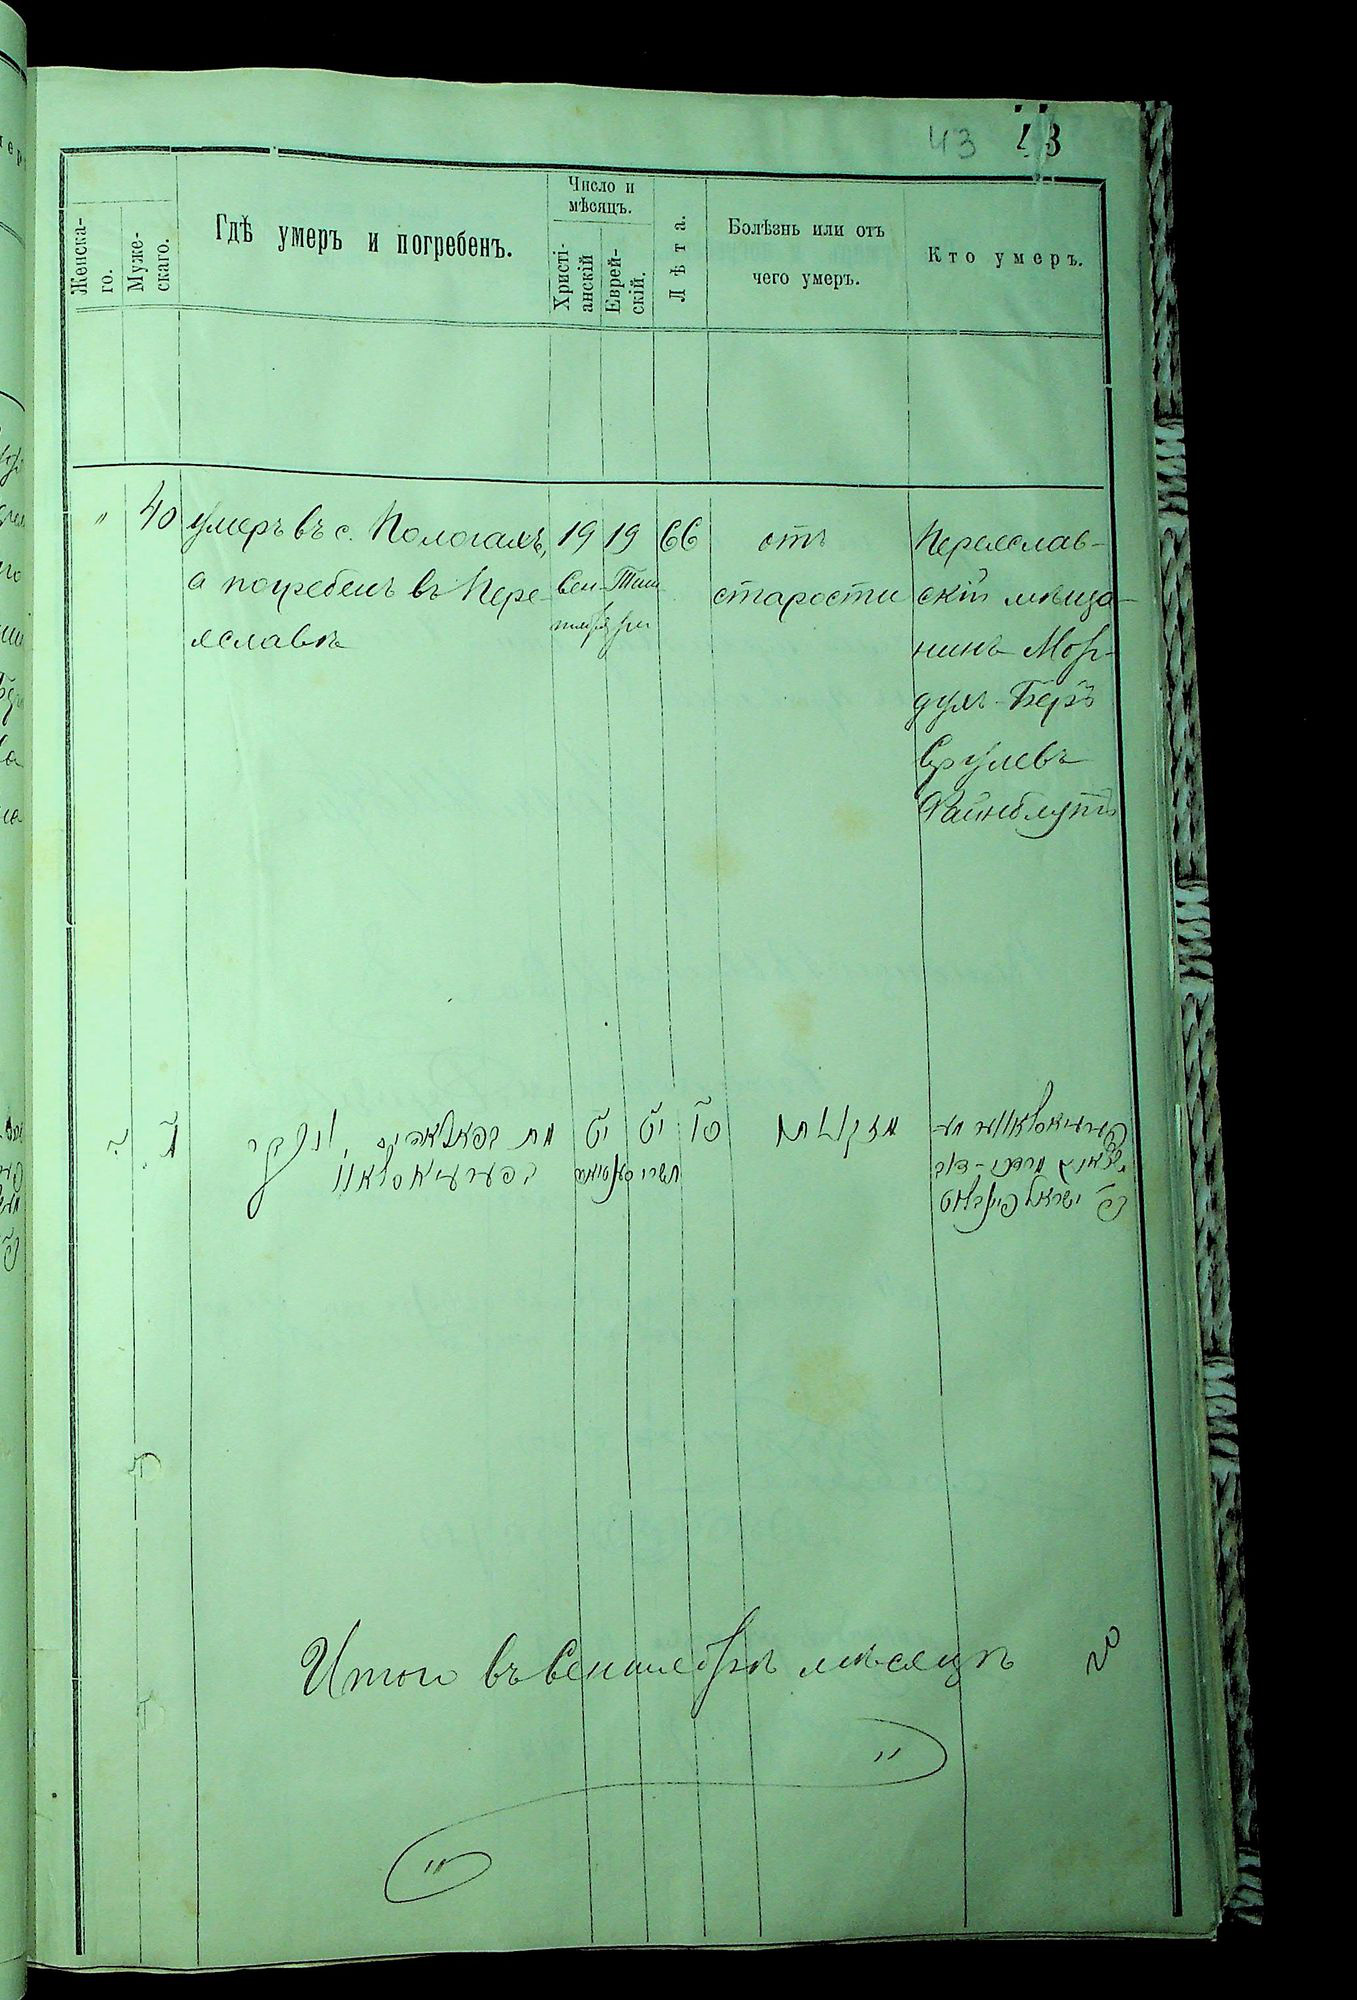 43 43
Женска-
го.
Муже-
скаго.
Гдѣ умеръ и погребенъ.
Число и
мѣсяцъ.
Христі-
анскій
Еврей-
скій.
Лѣта.
Болѣзнь или отъ
чего умеръ.
Кто умеръ.
" 40
умеръ въ с. Пологахъ,
а погребенъ въ Пере-
яславѣ
19
Сен-
тября
19
Тиш
ри
66
отъ
старости
Переяслав-
скій мѣща-
нинъ Мор-
духъ-Беръ
Срулевъ
Файнблутъ
מ
מת ונקבר
יט
יט
תשרי
סו
מזקנות
מרדכי - דוב
ישראל
Итого въ Сентябрѣ мѣсяцѣ 20
"
"